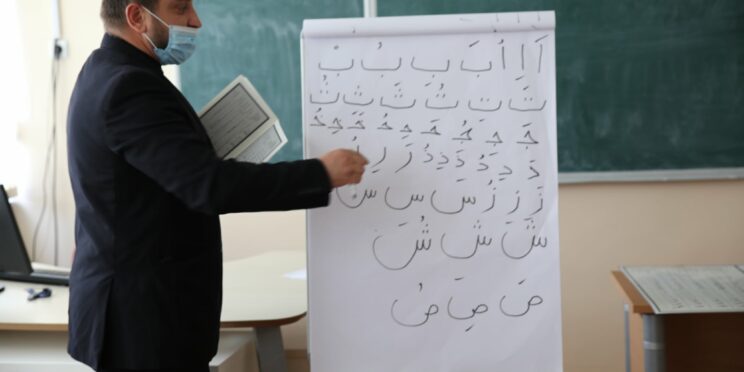 اَ اِ اُ بَ بِ بُ بْ
تَ تِ تُ ثَ ثِ ثُ
جَ جِ جُ حَ حِ حُ خَ خِ خُ
دَ دِ دُ ذَ ذِ ذُ رَ رِ
زَ زِ زُ سَ سِ سُ
شَ شِ شُ
صَ صِ صُ